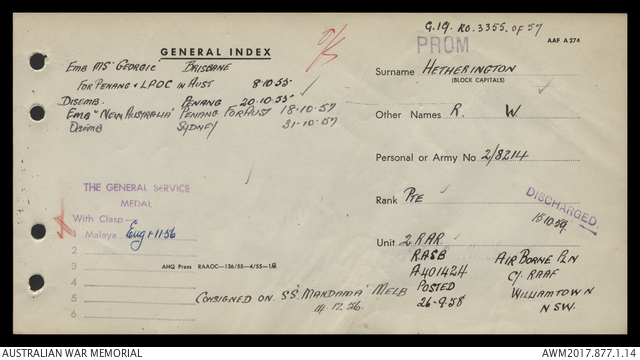 G.19. RO.3355. OF 57
PROM
AAF A 274
GENERAL INDEX
O/S
EMB MS "GEORGIC" BRISBANE
FOR PENANG & LPOC IN AUST 8·10·55
DISEMB. PENANG 20·10·55
EMB "NEW AUSTRALIA" PENANG FOR AUST 18·10·57
DISEMB SYDNEY 31-10-57
Surname HETHERINGTON
(BLOCK CAPITALS)
Other Names R. W
Personal or Army No 2/8214
Rank PTE
DISCHARGED
15.10.59
THE GENERAL SERVICE
MEDAL
With Clasp
1 Malaya Eng 1·11·56
2
3
4
5
6
AHQ Press RAAOC—136/55—4/55—1M
CONSIGNED ON S.S. "MANDAMA" MELB
14.12.56.
Unit 2 RAR
RASB
A401424
POSTED
26-9.58
AIR BORNE PLN
C/- RAAF
WILLIAMTOWN
NSW.
AUSTRALIAN WAR MEMORIAL
AWM2017.877.1.14